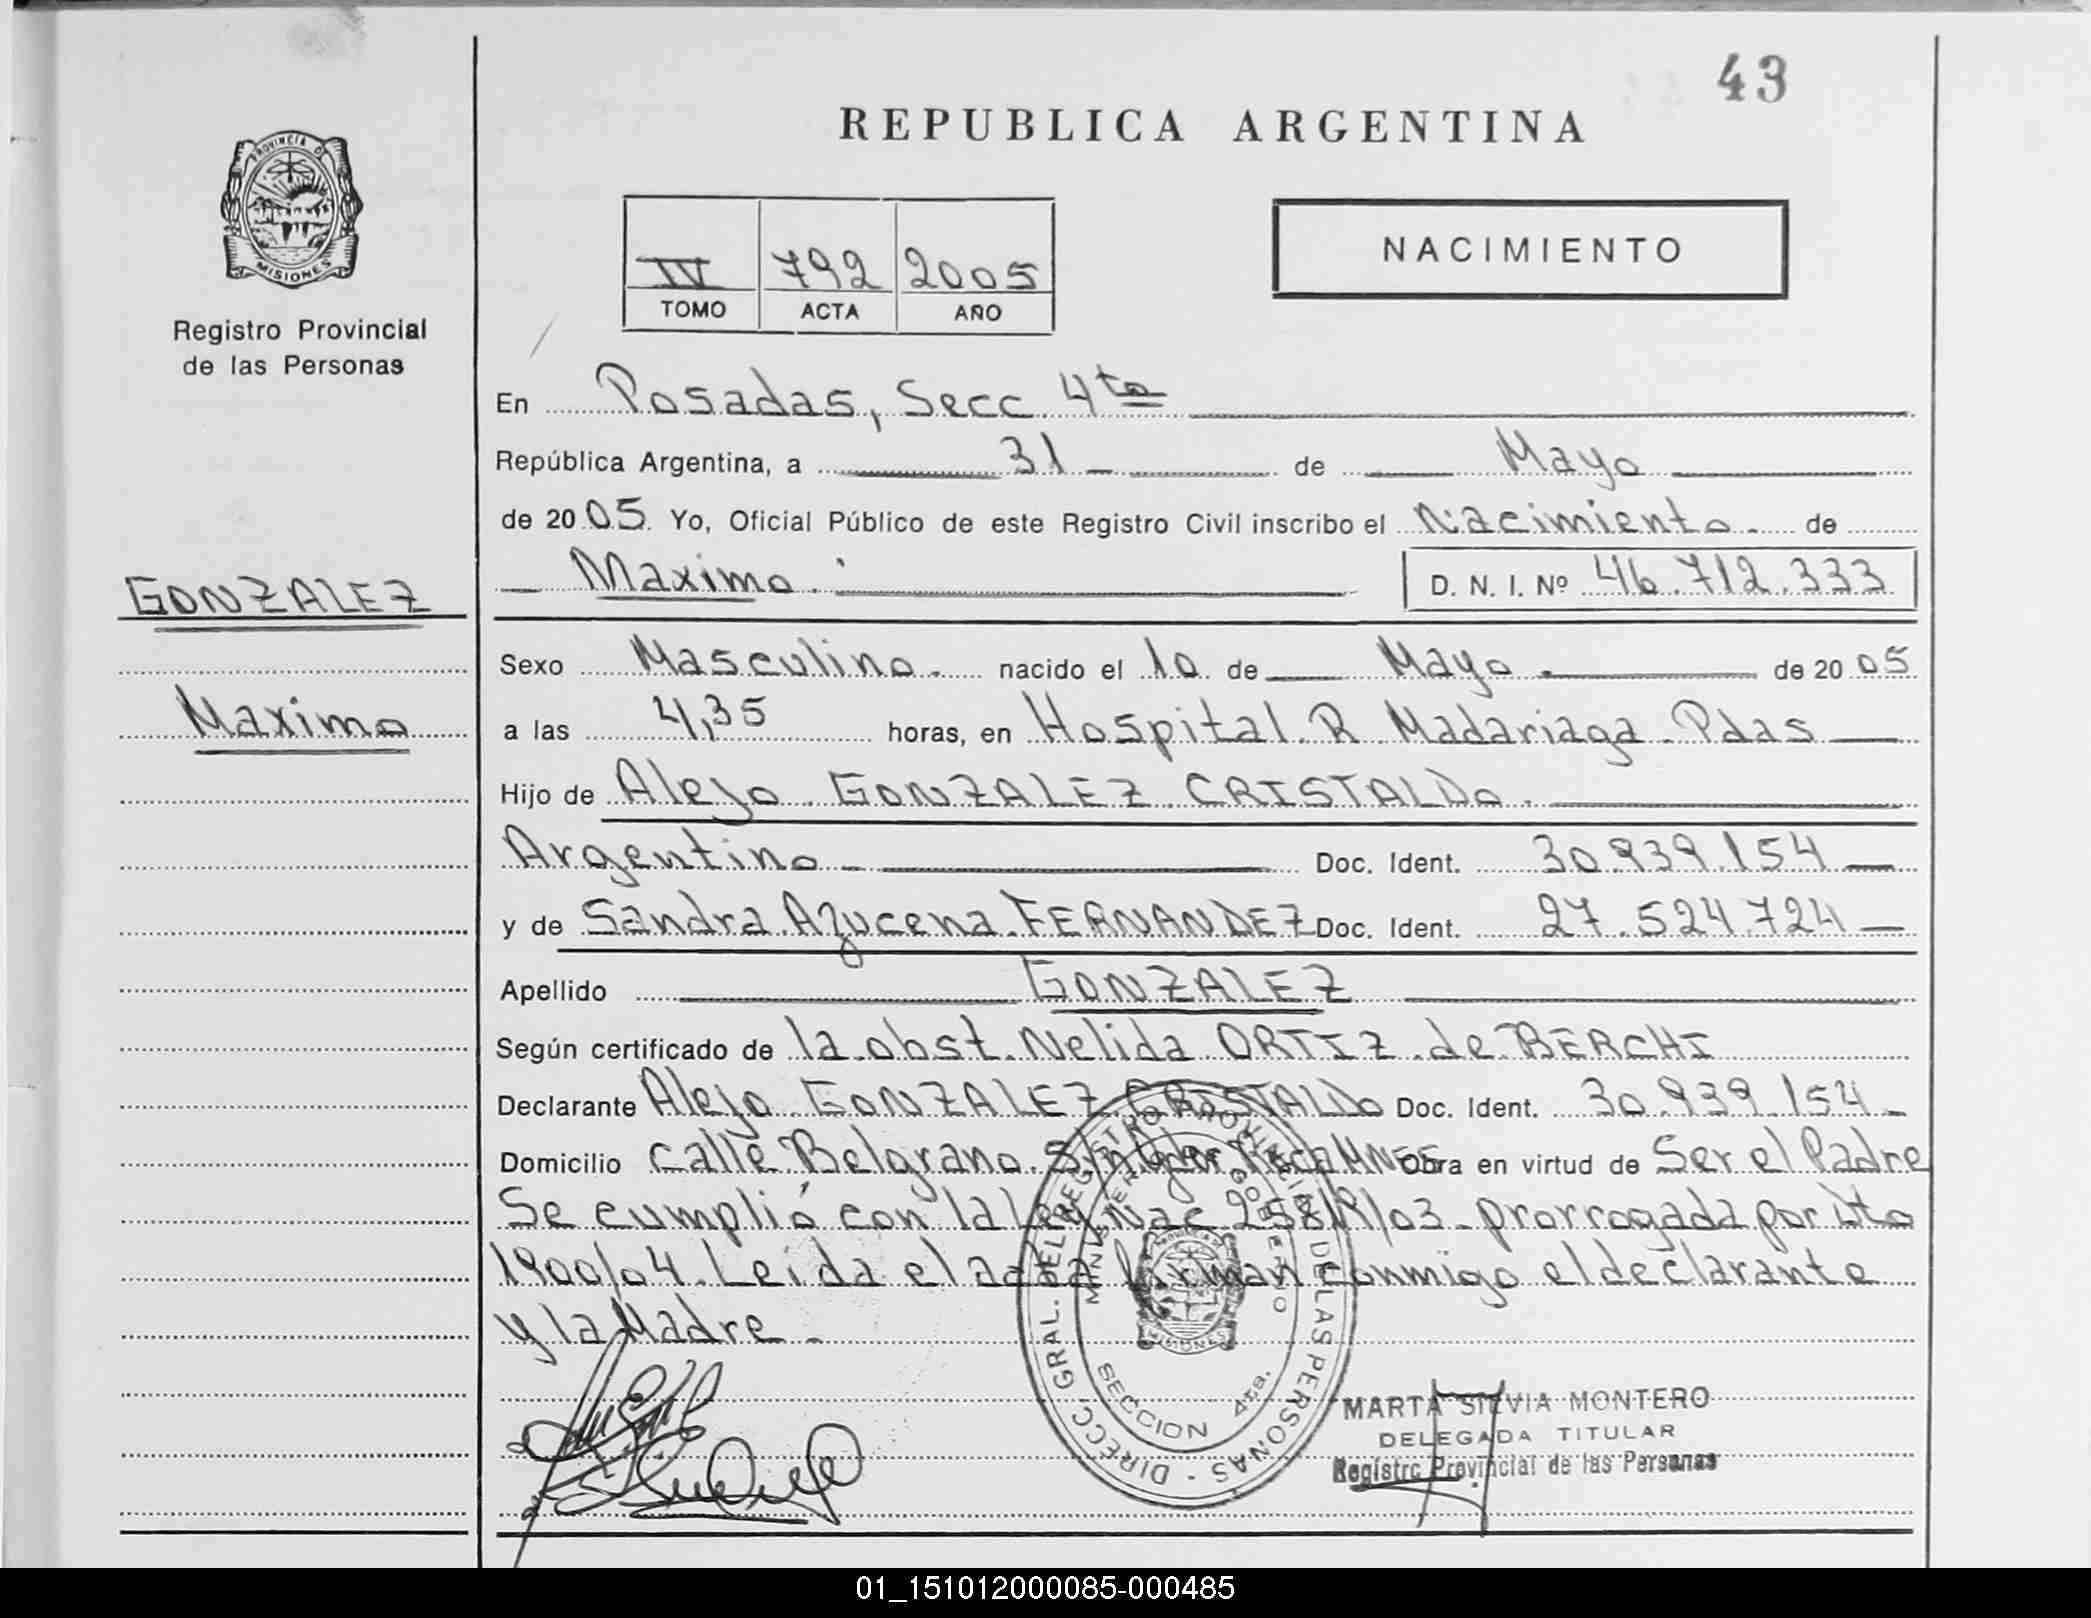 43
REPUBLICA ARGENTINA
PROVINCIA DE
MISIONES
Registro Provincial
de las Personas
NACIMIENTO
IV 792 2005
TOMO ACTA AÑO
En Posadas, Secc 4ta
República Argentina, a 31 de Mayo
de 2005. Yo, Oficial Público de este Registro Civil inscribo el Nacimiento. de
GONZALEZ
Maximo. D. N. I. Nº 46.712.333
Sexo Masculino. nacido el 10 de Mayo. de 2005
Maximo
a las 4,35 horas, en Hospital R Madariaga Pdas
Hijo de Alejo GONZALEZ CRISTALDO.
Argentino Doc. Ident. 30.939.154
y de Sandra Azucena FERNANDEZ Doc. Ident. 27.524.724
Apellido GONZALEZ
Según certificado de la obst. Nelida ORTIZ de BERCHI
Declarante Alejo GONZALEZ CRISTALDO Doc. Ident. 30.939.154
Domicilio Calle Belgrano S/n Obra en virtud de Ser el Padre
Se cumplió con la Ley Nac 25819/03 prorrogada por Dto
1900/04. Leida el acta firman conmigo el declarante
y la Madre.
DIRECC. GRAL. DEL REGISTRO PROVINCIAL DE LAS PERSONAS
MINISTERIO GOBIERNO
PROVINCIA DE
MISIONES
SECCION 4ta.
MARTA SILVIA MONTERO
DELEGADA TITULAR
Registro Provincial de las Personas
01_151012000085-000485